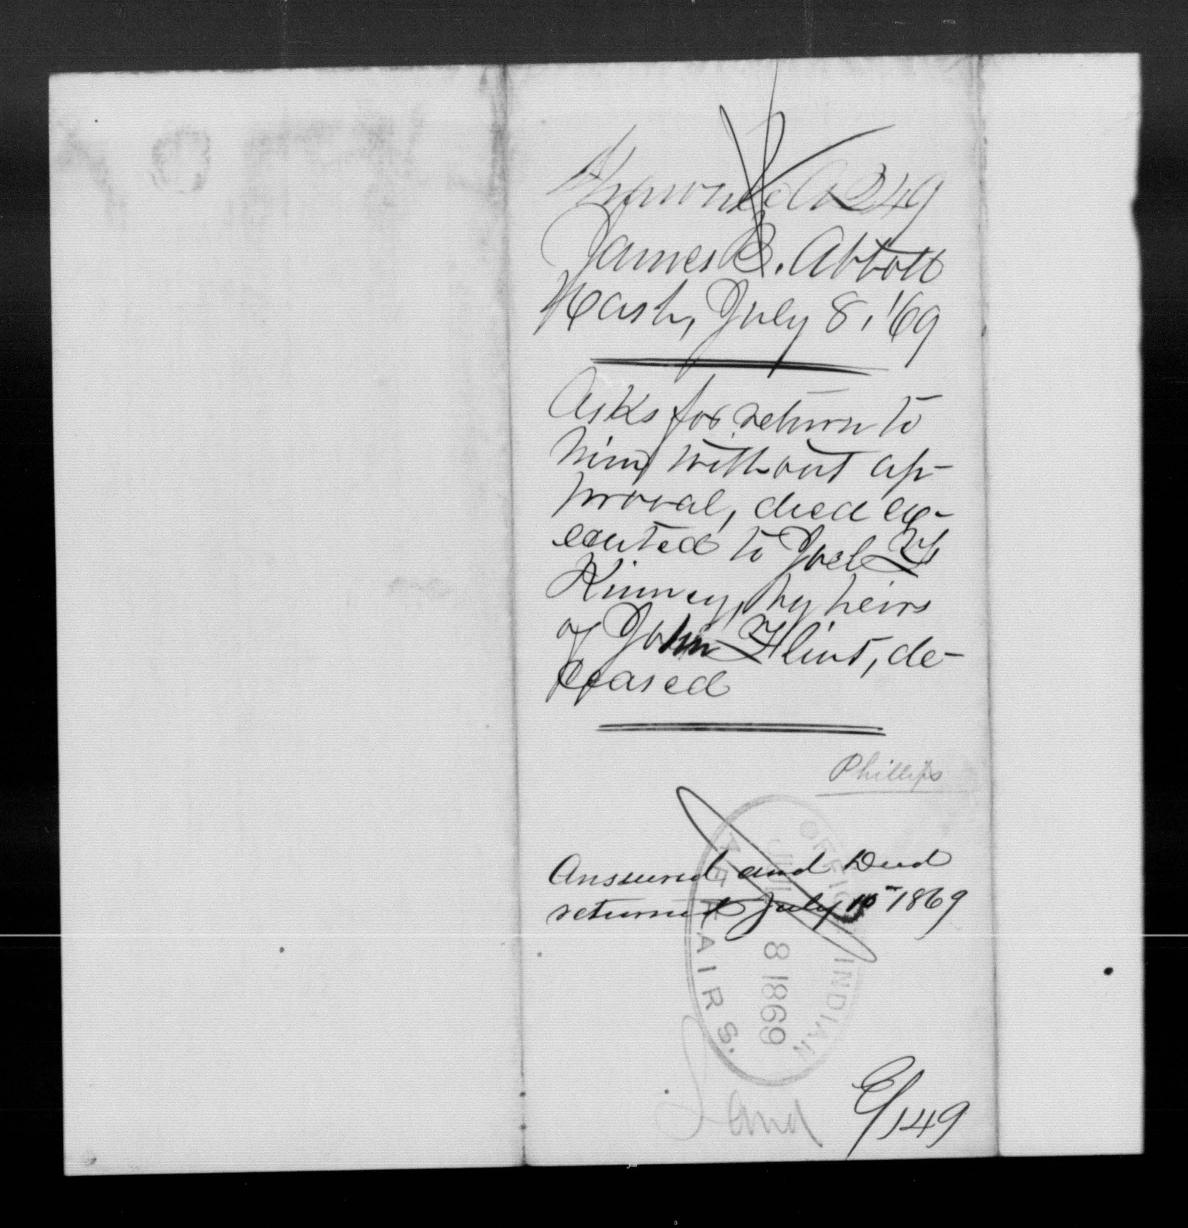 Shawnee A 249
James B. Abbott
Wash, July 8, '69
Asks for return to
him, without ap-
proval, deed ex-
ecuted to Joel F.
Kinney, by heirs
of John Flint, de-
ceased
Phillips
Answered and Deed
returned July 10" 1869
OFFICE INDIAN AFFAIRS.
JUL 8 1869
Land
C/149